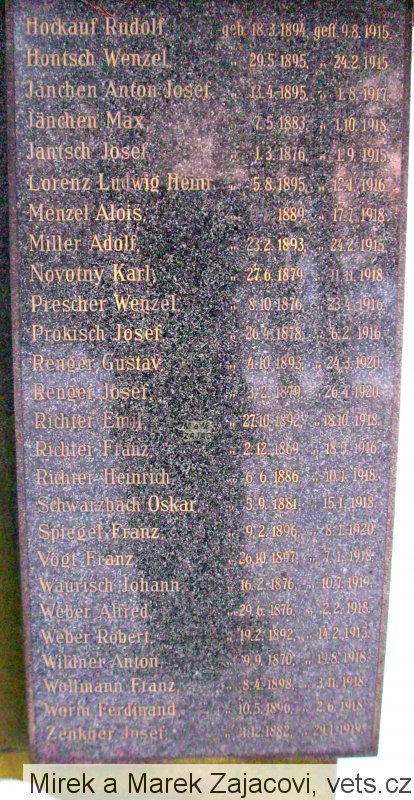 Hockauf Rudolf, geb. 18.3.1894, gefl. 9.8.1915.
Hontsch Wenzel, „ 29.5.1895, „ 24.2.1915.
Jänchen Anton Josef, „ 13.4.1895, „ 1.8.1917.
Jänchen Max, „ 7.5.1883, „ 1.10.1918.
Jantsch Josef, „ 1.3.1876, „ 1.9.1915.
Lorenz Ludwig Heinr. „ 5.8.1895, „ 12.1.1916.
Menzel Alois, „ 1889, „ 17.7.1918.
Miller Adolf, „ 23.2.1893, „ 24.2.1915.
Novotny Karl, „ 27.6.1879, „ 11.11.1918.
Prescher Wenzel, „ 8.10.1876, „ 23.4.1916.
Prokisch Josef, „ 26.4.1878, „ 6.2.1916.
Renger Gustav, „ 4.10.1893, „ 24.3.1920.
Renger Josef, „ „ 26.4.1920.
Richter Emil, „ 27.10.1892, „ 18.10.1918.
Richter Franz, „ 2.12.1869, „ 18.5.1916.
Richter Heinrich, „ 6.6.1886, „ 10.1.1918.
Schwarzbach Oskar, „ 5.9.1881, „ 15.1.1918.
Spiegel Franz, „ 9.2.1896, „ 8.1.1920.
Vogt Franz, „ 26.10.1897, „ 7.1.1918.
Waurisch Johann „ 16.2.1876, „ 10.7.1919.
Weber Alfred, „ 29.6.1876, „ 2.2.1918.
Weber Robert, „ 19.2.1892, „ 14.2.1915.
Wildner Anton, „ 9.9.1870, „ 19.8.1918.
Wollmann Franz, „ 8.4.1898, „ 3.11.1918.
Worm Ferdinand, „ 10.5.1896, „ 2.6.1918.
Zenkner Josef, „ 31.12.1882, „ 29.1.1919.
Mirek a Marek Zajacovi, vets.cz